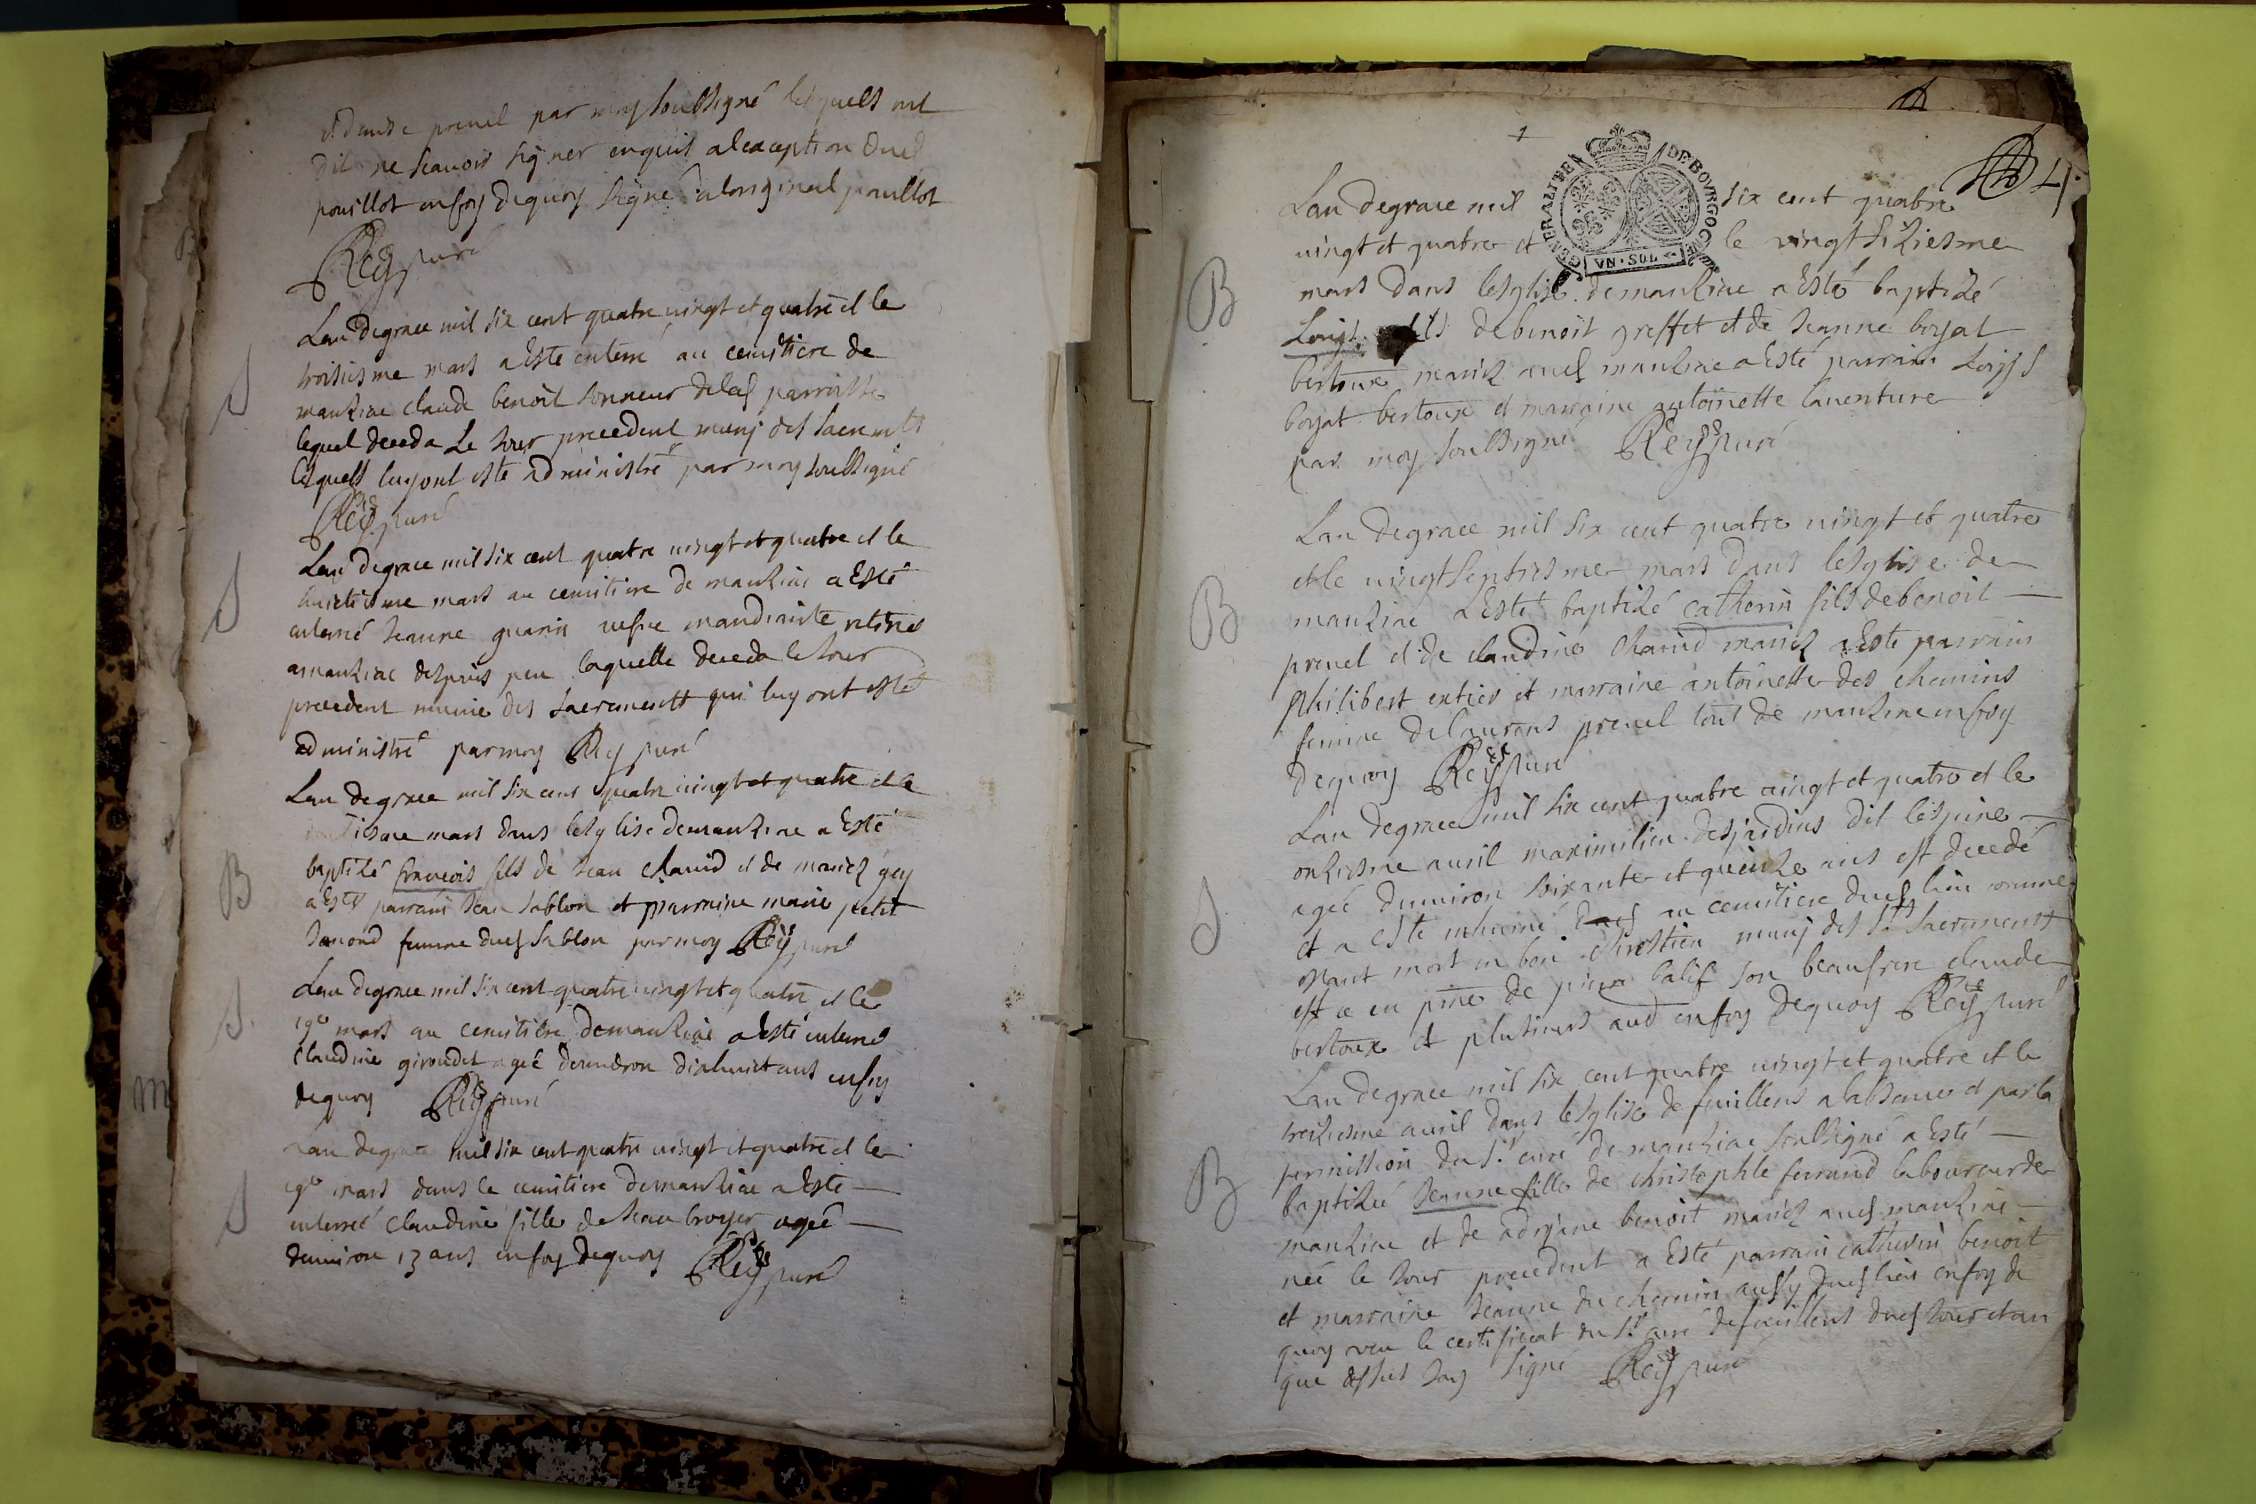 et de preuel par moy soubsigné lesquels ont
dit ne scauoir signer enquis a lexception dud
pouillot en foy dequoy signé a loriginal pouillot
Rey curé
Lan degrace mil six cent quatre uingt et quatre et le
troisiesme mars a esté enterré au cemitiere de
manziac claude benoit sonneur delad parroisse
lequel deceda le iour precedent muny des sacremts
lesquels luy ont esté administré par moy soubsigné
Rey curé
S
Lan degrace mil six cent quatre uingt et quatre et le
huictiesme mars au cemitiere de manziac a esté
enterré Jeanne guerin uefue mandiante retirée
a manziac despuis peu laquelle deceda le iour
precedent munie des sacrements qui luy ont esté
administré par moy Rey curé
S
Lan degrace mil six cent quatre uingt et quatre et le
mars dans lesglise demanziac a esté
baptizé francois fils de Jean chanid et de mariez gey
a esté parrain Jean sablon et marraine marie petit
Janond femme dud sablon par moy Rey curé
B
Lan degrace mil six cent quatre uingt et quatre et le
19e mars au cemitiere demanziac a esté enterré
Claudine giroudet agée denuiron dixhuict ans en foy
dequoy Rey curé
S
Lan degrace mil six cent quatre uingt et quatre et le
mars dans le cemitiere demanziac a esté
enterré Claudine fille de Jean broyer agée
denuiron 13 ans en foy dequoy Rey curé
S
1
4
GENERALITE DE BOVRGOGNE
VN·SOL
Lan degrace mil six cent quatre
uingt et quatre et le vingtsixiesme
mars dans lesglise demanziac a esté baptizé
Loys fils de benoit greffet et de Jeanne boyat
bertoux mariez aud manziac a esté parrain Loys
boyat bertoux et marraine antoinette lauenture
par moy soubsigné Rey curé
B
Lan degrace mil six cent quatre uingt et quatre
et le uingtseptiesme mars dans lesglise de
manziac a esté baptizé catherin fils de benoit
preuel et de claudine chanid mariez a esté parrain
philibert entier et marraine antoinette des chemins
femme de laurans preuel tous de manziac en foy
dequoy Rey curé
B
Lan degrace mil six cent quatre uingt et quatre et le
onziesme auril maximilien desjardins dit lespine
agée denuiron soixante et quinze ans est decedé
et a esté inhumé au cemitiere dud lieu comme
estant mort en bon chrestien muny des Sts sacrements
et ce en pnce de pierre balif son beaufrere claude
bertoux et plusieurs aud en foy dequoy Rey curé
S
Lan degrace mil six cent quatre uingt et quatre et le
treiziesme auril dans lesglise de feuillens a labsence et par la
permission du Sr curé de manziac soubsigné a esté
baptizée Jeanne fille de christophle ferrand laboureur de
manziac et de adriane benoit mariez aud manziac
née le iour precedent a esté parrain catherin benoit
et marraine Jeanne du chemin aussy dud lieu en foy de
quoy veu le certificat du Sr curé de feuillens dud iour et an
que dessus Jay signé Rey curé
B